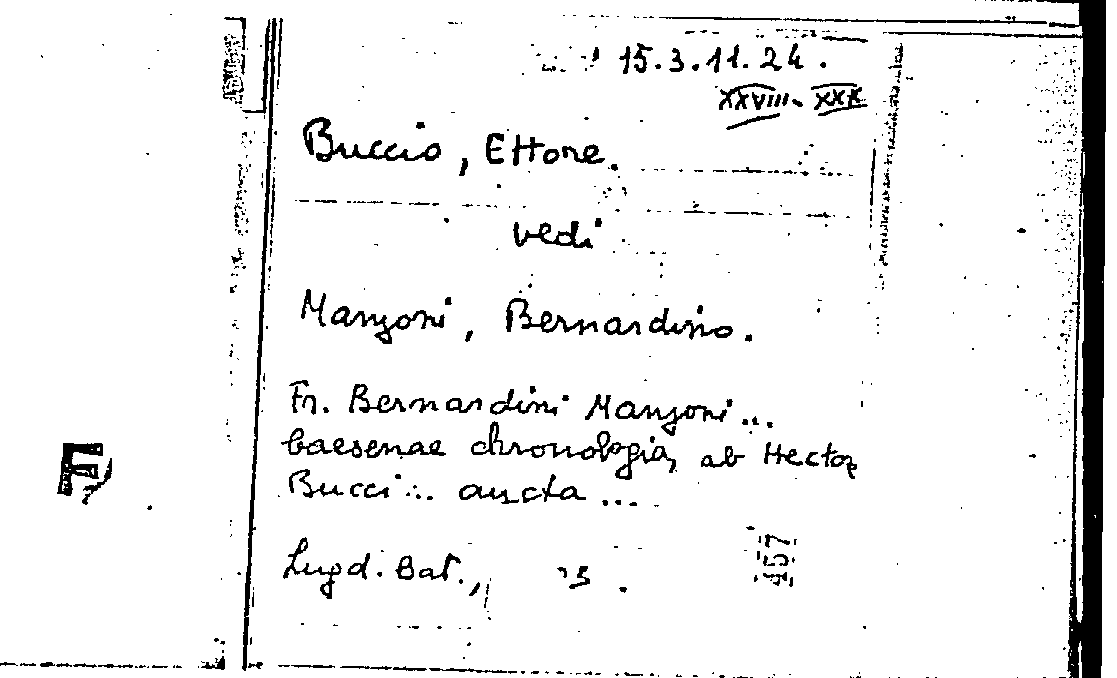 15.3.11.24.
XXVIII-XXX
Buccio, Ettore.
vedi
Manzoni, Bernardino.
Fr. Bernardini Manzoni...
Caesenae chronologia, ab Hectore
Bucci... aucta...
F
Lugd. Bat.,
457